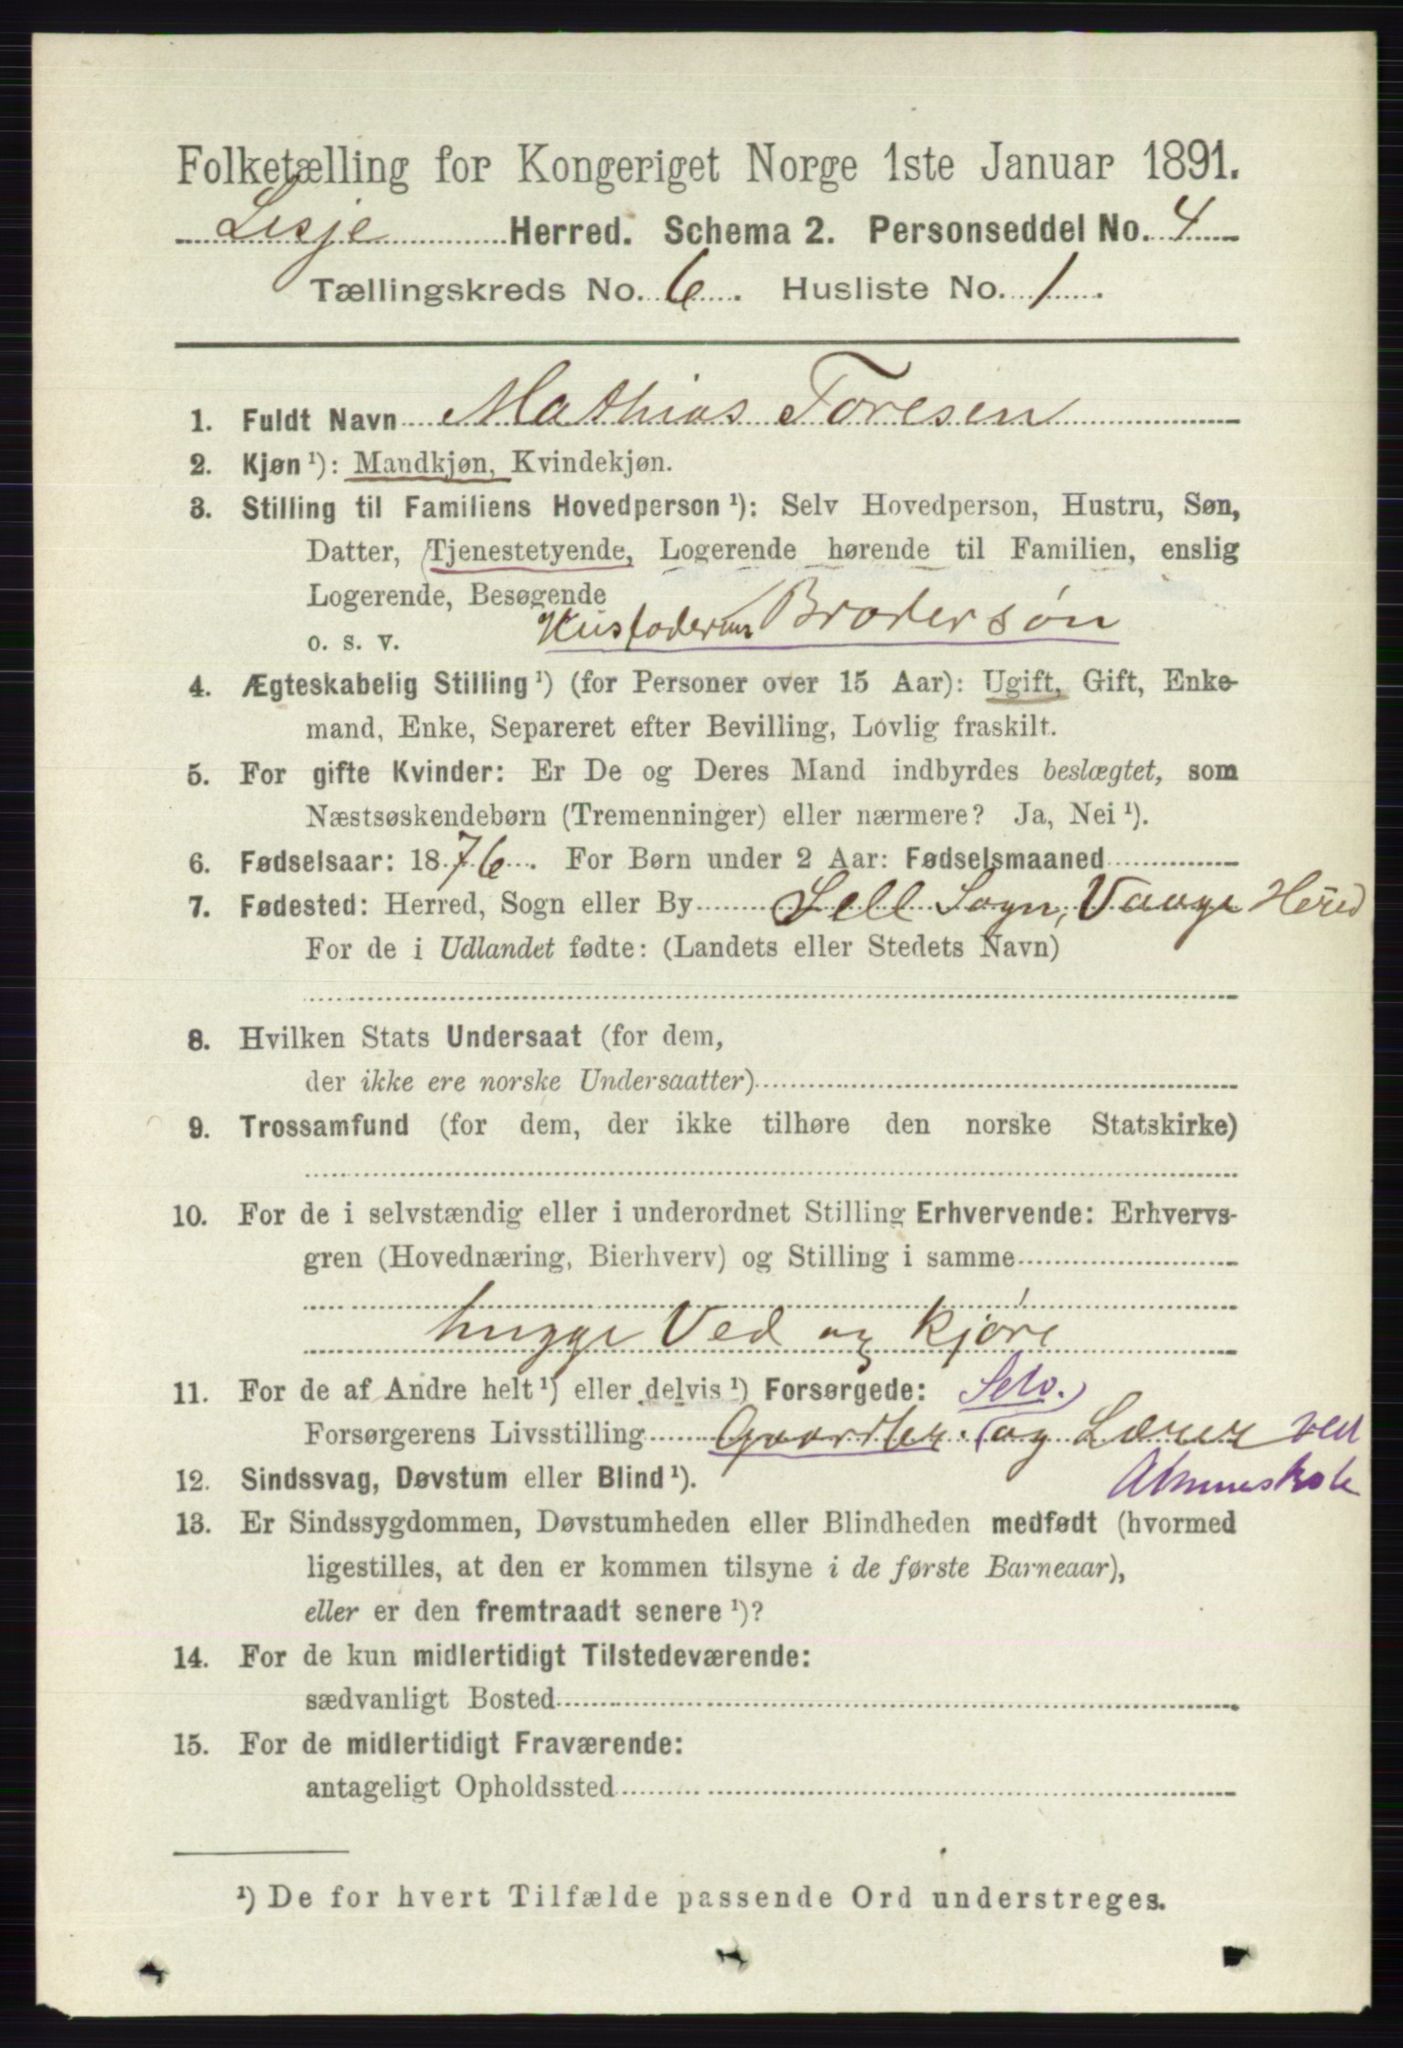 Folketælling for Kongeriget Norge 1ste Januar 1891.
Lesje Herred. Schema 2. Personseddel No. 4
Tællingskreds No. 6. Husliste No. 1.
1. Fuldt Navn Mathias Toresen
2. Kjøn ¹): Mandkjøn, Kvindekjøn.
3. Stilling til Familiens Hovedperson ¹): Selv Hovedperson, Hustru, Søn,
Datter, Tjenestetyende, Logerende hørende til Familien, enslig
Logerende, Besøgende
o. s. v. Husfaderens Brodersøn
4. Ægteskabelig Stilling ¹) (for Personer over 15 Aar): Ugift, Gift, Enke-
mand, Enke, Separeret efter Bevilling, Lovlig fraskilt.
5. For gifte Kvinder: Er De og Deres Mand indbyrdes beslægtet, som
Næstsøskendebørn (Tremenninger) eller nærmere? Ja, Nei ¹).
6. Fødselsaar: 1876. For Børn under 2 Aar: Fødselsmaaned
7. Fødested: Herred, Sogn eller By Sell Sogn, Vaage Herred
For de i Udlandet fødte: (Landets eller Stedets Navn)
8. Hvilken Stats Undersaat (for dem,
der ikke ere norske Undersaatter)
9. Trossamfund (for dem, der ikke tilhøre den norske Statskirke)
10. For de i selvstændig eller i underordnet Stilling Erhvervende: Erhvervs-
gren (Hovednæring, Bierhverv) og Stilling i samme
hugge Ved og kjøre
11. For de af Andre helt ¹) eller delvis ¹) Forsørgede: Selv.
Forsørgerens Livsstilling Gaardbr. og Lærer ved
12. Sindssvag, Døvstum eller Blind ¹). Almueskole
13. Er Sindssygdommen, Døvstumheden eller Blindheden medfødt (hvormed
ligestilles, at den er kommen tilsyne i de første Barneaar),
eller er den fremtraadt senere ¹)?
14. For de kun midlertidigt Tilstedeværende:
sædvanligt Bosted
15. For de midlertidigt Fraværende:
antageligt Opholdssted
¹) De for hvert Tilfælde passende Ord understreges.